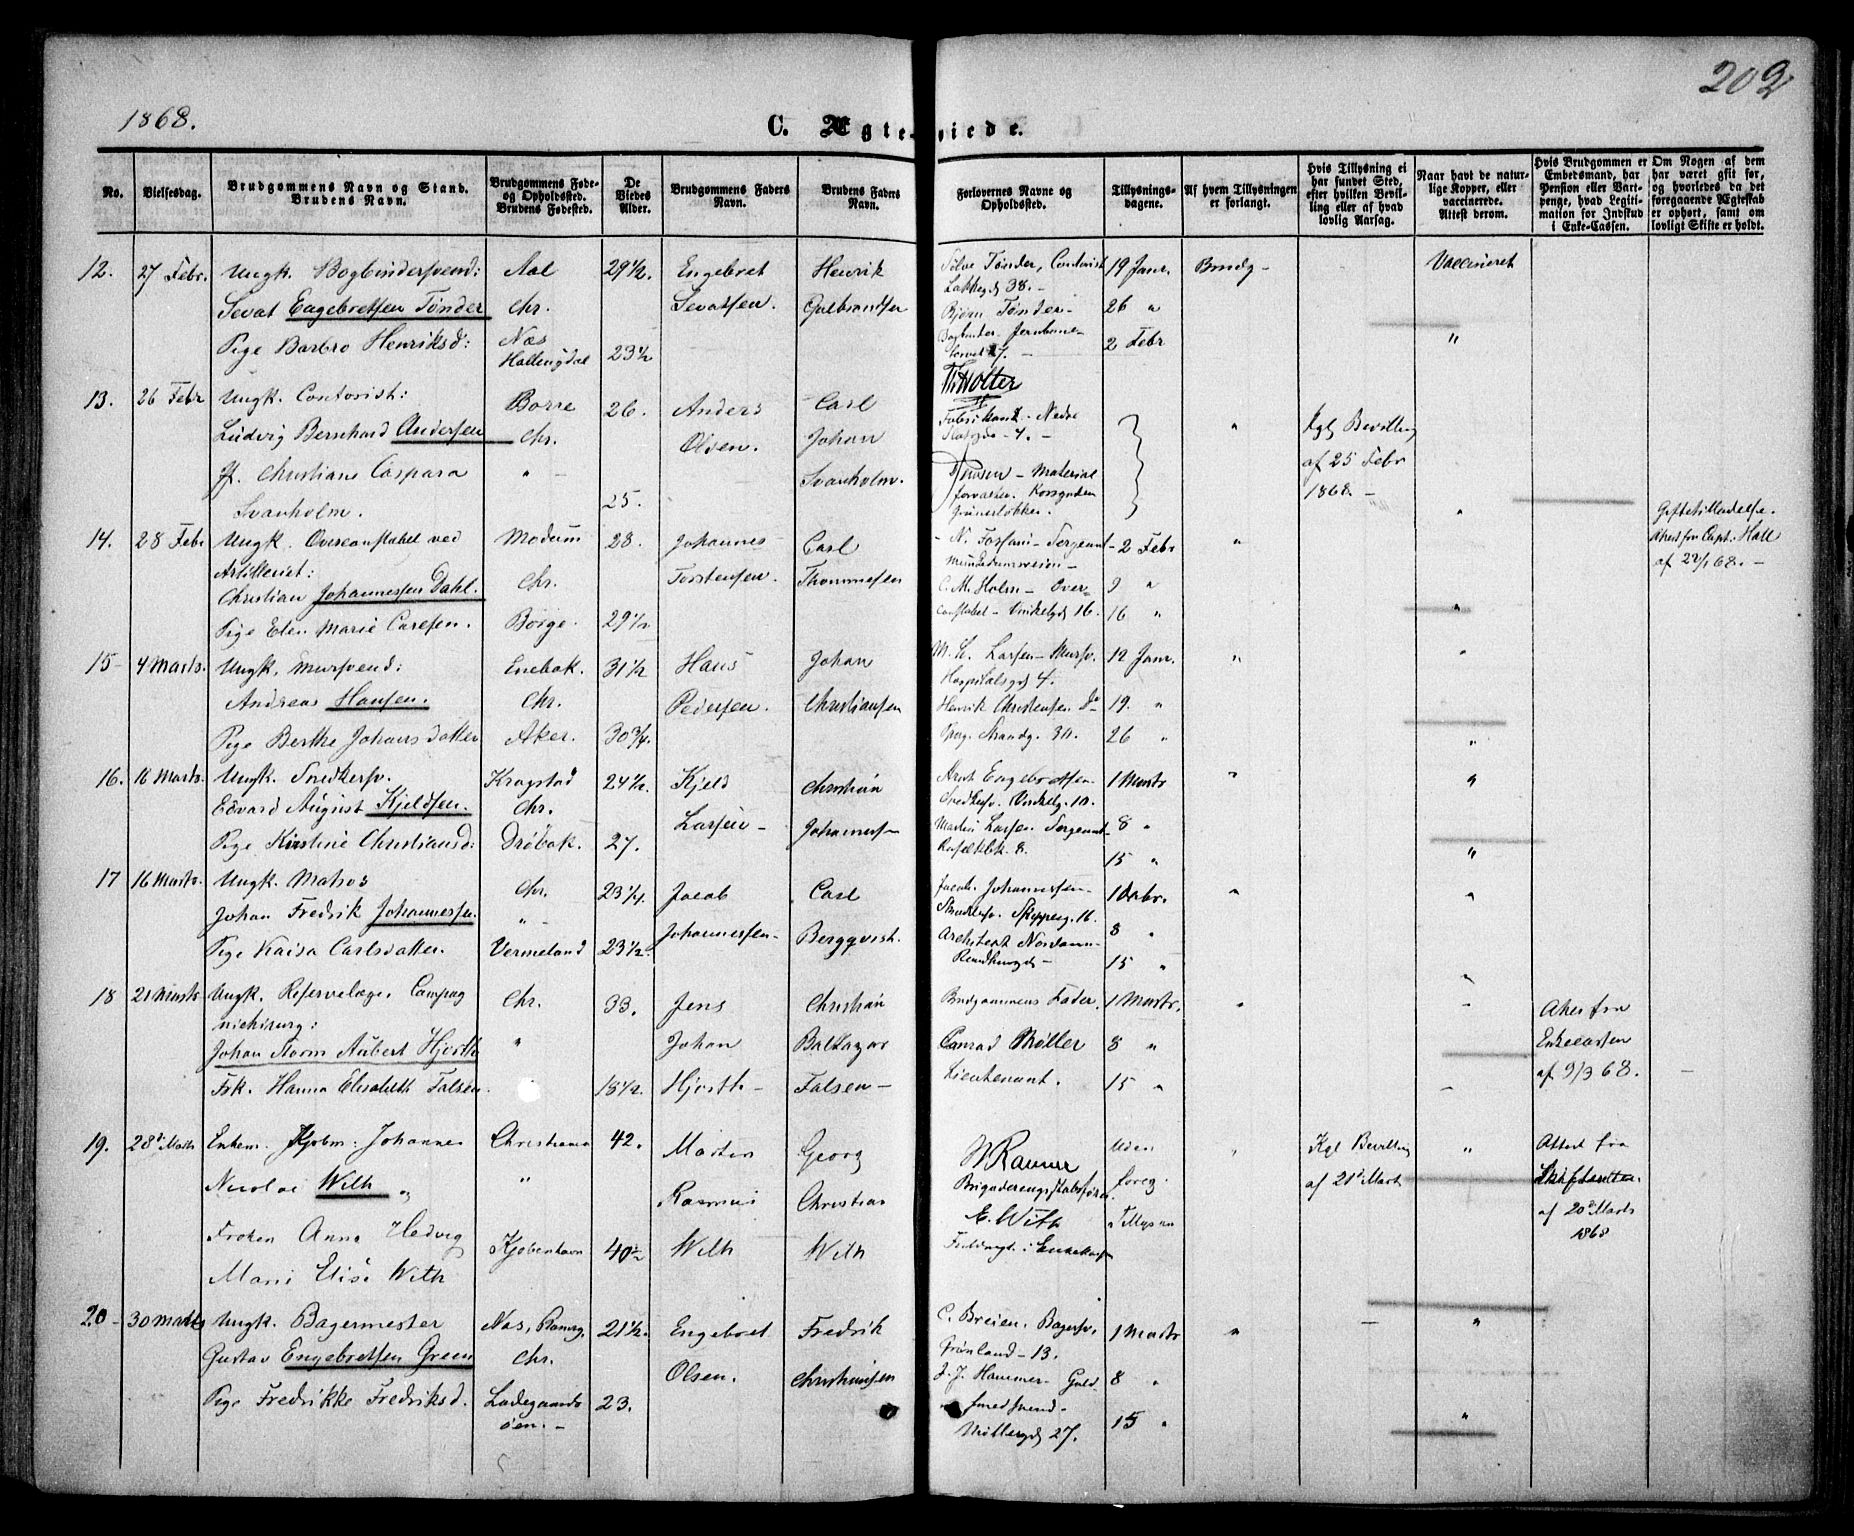 1868.
C. Ægteviede.
202
No.
Vielsesdag.
Brudgommens Navn og Stand.
Brudens Navn.
Brudgommens Føde-
og Opholdsted.
Brudens Fødested.
De
Viedes
Alder.
Brudgommens Faders
Navn.
Brudens Faders
Navn.
Forlovernes Navne og
Opholdsted.
Tillysnings-
dagene.
Af hvem Tillysningen
er forlangt.
Hvis Tillysning ei
har fundet Sted,
efter hvilken Bevil-
ling eller af hvad
lovlig Aarsag.
Naar havt de natur-
lige Kopper, eller
vaccinerede.
Attest derom.
Hvis Brudgommen er
Embedsmand, har
Pension eller Vart-
penge, hvad Legiti-
mation for Indskud
i Enke-Cassen.
Om Nogen af dem
har været gift før,
og hvorledes da det
foregaaende Ægteskab
er ophørt, samt om
lovligt Skifte er holdt.
12. 27 Febr. Ungk. Bogbindersvend: Aal 29 1/2. Engebret Henrik Sølve Tønder, Contorist 19 Janr. Brudg - Vaccineret
Sevat Engebretsen Tønder Chr. Sevatsen. Gulbrandsen Lakkegd 38. - 26 "
Bjørn Tønder -
Pige Barbro Henriksd: Næs 23 1/2 Bogbinder Jernbane- 2 Febr "
Hallingdal torvet 7. -
13. 26 Febr Ungk. Contorist: Borre 26. Anders Carl
Ludvig Bernhard Andersen Chr. Olsen. Johan Fabrikant - Nedre " Kgl Bevilling
Jf. Christiane Caspara " - Svanholm. - Material af 25 Febr
Svanholm. 25. forvalter. 1868. - "
Grünerløkken.
14. 28 Febr Ungk. Overconstabel ved Modum 28. Johannes Carl N. Forsani - Sergeant - 2 Febr " Giftetilladelse.
Artilleriet: Munkedamsveien - Capt. Hall
Christian Johannessen Dahl. Chr. Torstensen. Thommesen C. M. Holm - Over- 9 " af 22/1 68. -
constabel - Vinkelgd 16. 16 " "
Pige Elen Marie Carlsen. Børge. 29 1/2
15 - 4 Marts. Ungk. Mursvend: Enebak 31 1/2 Hans Johan M. L. Larsen - Mursv. 12 Janr. " "
Hospitalsgd 4.
Andreas Hansen. Chr. Pedersen. Christiansen Henrik Christensen Do 19. "
Pige Berthe Johansdatter Aker. 30 3/4. Strandg. 30. 26 " "
16. 16 Marts. Ungk. Snedkersv. Kragstad 24 1/2. Kjeld Christian Arnt Engebretsen 1 Marts " "
Edvard August Kjeldsen. Chr. Snedkersv. Vinkelg. 10.
Larsen - Johannesen Martin Larsen Sergeant 8 "
Pige Kirstine Christiansd: Drøbak. 27. 15 " "
17 16 Marts. Ungk. Matros Chr. 23 1/4. Jacob Carl Jacob Johannessen 1 " "
Johan Fredrik Johannessen. " - Skipperg. 16.
Johannessen - Bergqvist. Architect Nordan 8 "
Pige Kaisa Carlsdatter. Vermeland 23 1/2. 15 " "
18 21 Marts Ungk. Reservelæge, Compag Chr. 33. Jens Christian Brudgommens Fader. 1 Marts. " -
nichirurg: Attest fra
Johan Storm Aubert Hjorth " Johan Baltazar Conrad Møller 8 " Enkecassen
Frk. Hanna Elisabeth Falsen. 18 1/2. Hjorth - Falsen - Lieutenant. 15 " af 9/3 68. -
19. 28de Marts Enkem. Kjøbm: Johannes Christiania 42. Morten Georg W Ranner Uden " Kgl Bevilling " Attest fra
Nicolai With " Rasmus Christian Brigaderengskabsfører. foreg. af 21de Marts Skifteretten.
E. With Tillysn af 20de Marts
1868
Frøken Anna Hedvig Kjøbenhavn 40 1/2 With With Fuldmægt. i Enkekassen
Marie Elise With
20 - 30 Marts Ungk. Bagermester Næs, Romrg. 21 1/2. Engebret Fredrik C. Breien. Bagersv. 1 Marts " "
Gustav Engebretsen Green Chr. Grønland - 13.
Olsen. Christiansen J. J. Hammer - Guld 8 "
Pige Fredrikke Fredriksd. Ladegaards 23. smedsvend - "
øen. - Møllergd 27. 15 "